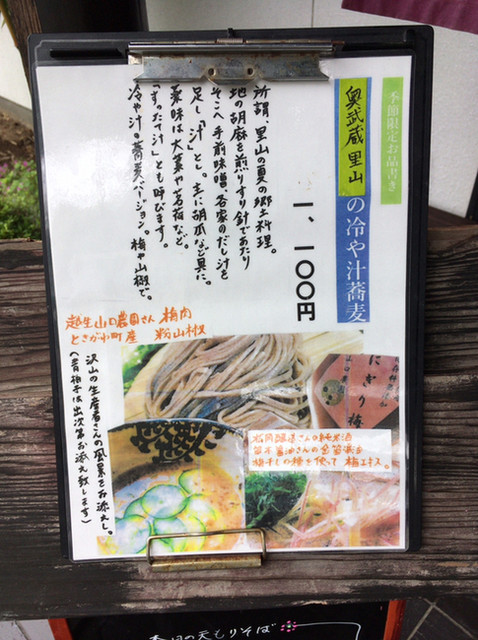 季節限定お品書き
奥武蔵里山の冷や汁蕎麦
一、一〇〇円
所謂、里山の夏の郷土料理。
地の胡麻を煎りすり針であたり
そこへ手前味噌、各家のだし汁を
足し「汁」とし。主に胡瓜など具に。
薬味は大葉や茗荷など。
「すったて汁」とも呼びます。
冷や汁。蕎麦バージョン。梅や山椒で。
越生山口農園さん 梅肉
ときがわ町産 粉山椒
沢山の生産者さんの風景をお添えし。
（青柚子は出次第お添え致します）
にぎり梅
松岡醸造さんの純米酒
笛木醤油さんの金笛減塩
梅干しの種を使って 梅エキス。
季節の天もりそば